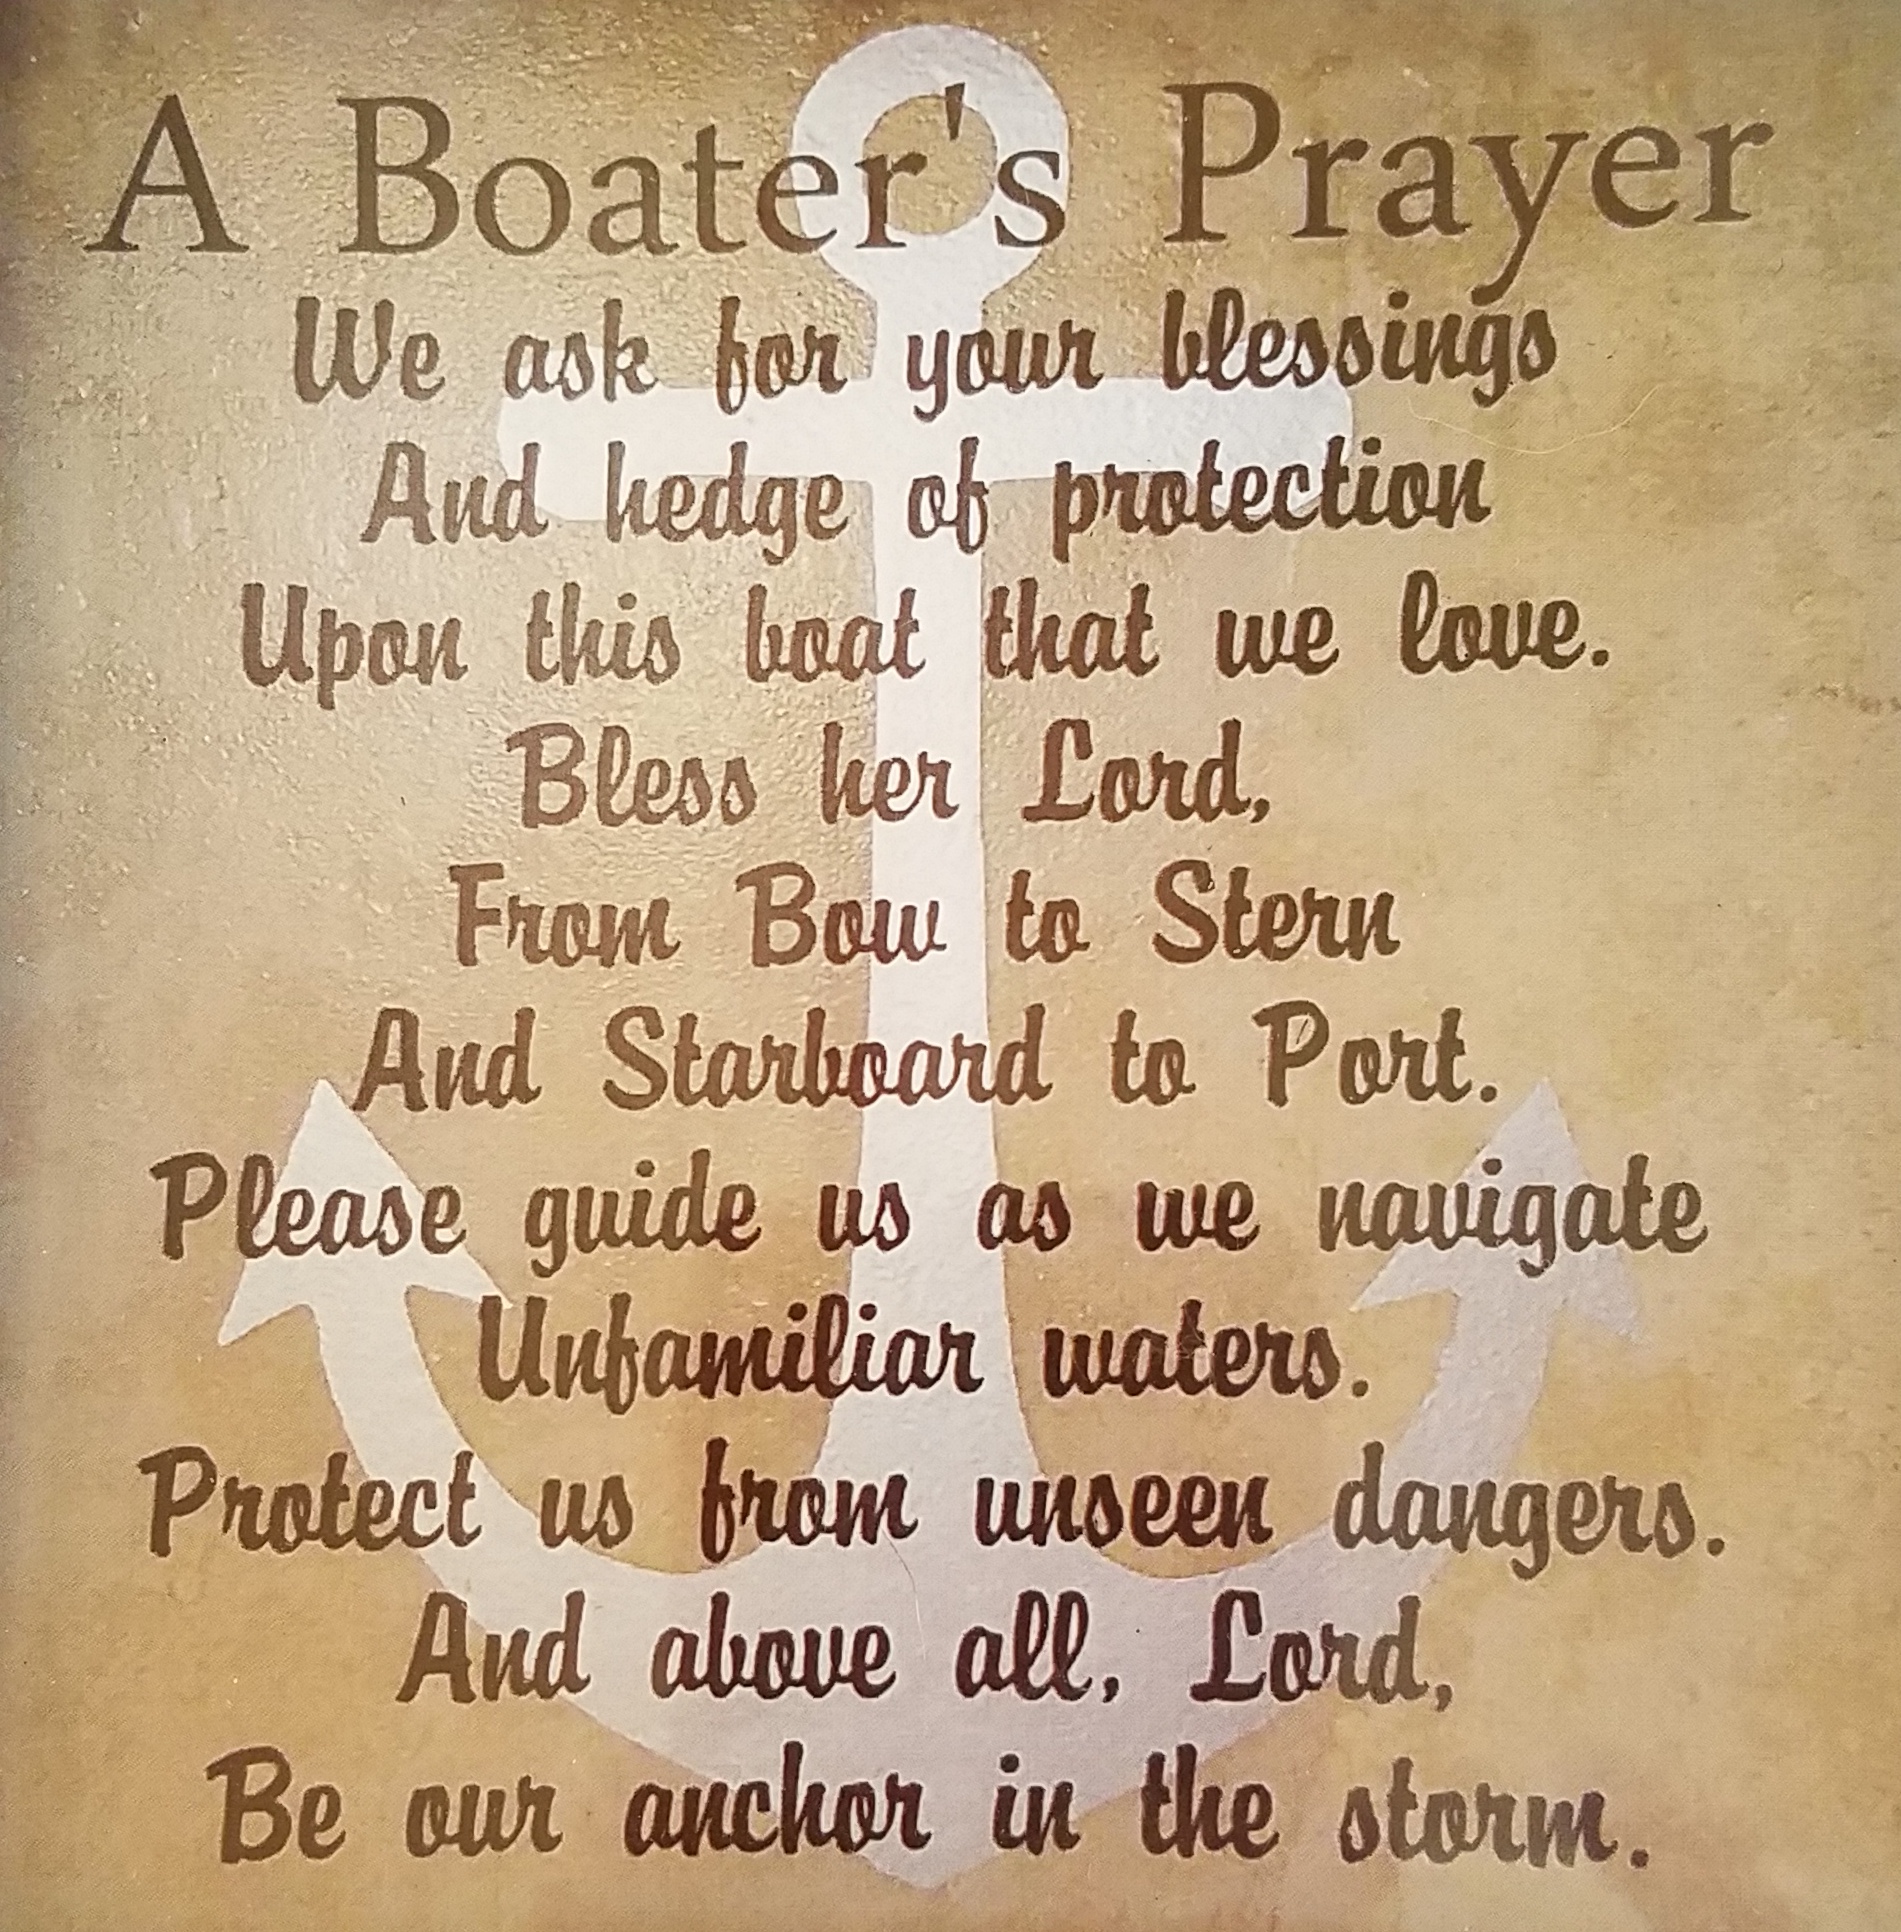 A Boater's Prayer
We ask for your blessings
And hedge of protection
Upon this boat that we love.
Bless her Lord,
From Bow to Stern
And Starboard to Port.
Please guide us as we navigate
Unfamiliar waters.
Protect us from unseen dangers.
And above all, Lord,
Be our anchor in the storm.